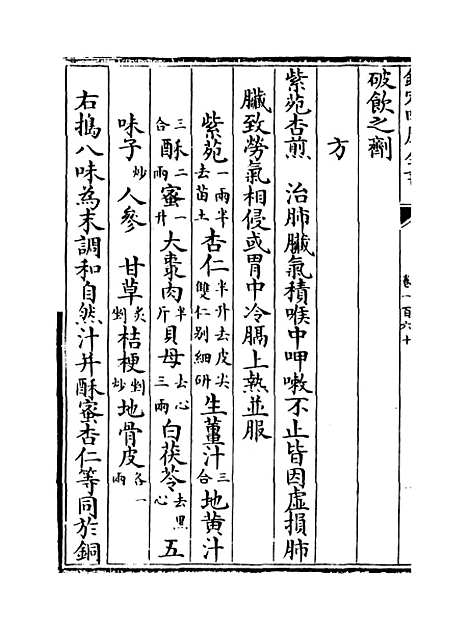 欽定四庫全書
卷一百六十
破飲之劑
方
紫苑杏煎 治肺臟氣積喉中呷嗽不止皆因虛損肺
臟致勞氣相侵或胃中冷膈上熱並服
紫苑一兩半去苗土杏仁半升去皮尖雙仁别細研生薑汁三合地黄汁
三合酥二兩蜜一升大棗肉半斤貝母去心三兩白茯苓去黑心五
味子炒人參 甘草炙剉桔梗剉炒地骨皮各一兩
右搗八味為末調和自然汁并酥蜜杏仁等同於銅